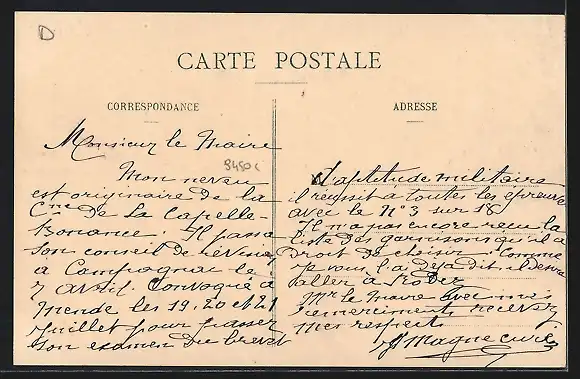 D
CARTE POSTALE
CORRESPONDANCE
Monsieur le Maire
9480c
Mon neveu
est originaire de la
Cne de la Capelle-
Bonance. Il passa
son conseil de révision
à Campagnac le
7 avril. Convoqué à
Mende les 19, 20 et 21
juillet pour passer
son examen du brevet
ADRESSE
d'aptitude militaire
il réussit à toutes les épreuves
avec le N° 3 sur 18
Il n'a pas encore reçu la
liste des garnisons qu'il a
droit de choisir. Comme
je vous l'ai déjà dit, il devra
aller à Rodez
Mr le Maire avec mes
remerciments recevez
mes respects
Magne curé